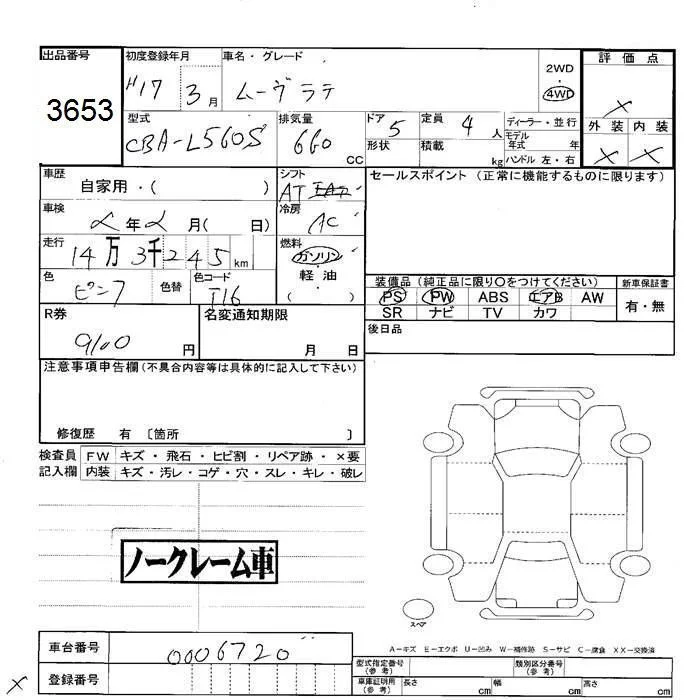 出品番号
3653
初度登録年月
H17 3月
車名・グレード
ムーヴラテ
2WD
・
4WD
評価点
×
外装 内装
× ×
型式
CBA-L560S
排気量
660 CC
ドア 5
形状
定員 4 人
積載 kg
ディーラー・並行
モデル
年式 年
ハンドル 左・右
車歴
自家用・( )
シフト
AT
セールスポイント (正常に機能するものに限ります)
車検
年 月( 日)
冷房
AC
走行
14万3千245km
燃料
ガソリン
・
軽油
・
( )
色
ピンク
色替
色コード
T16
装備品 (純正品に限り○をつけてください)
PS PW ABS エアB AW
SR ナビ TV カワ
新車保証書
有・無
後日品
R券
9100 円
名変通知期限
月 日
注意事項申告欄(不具合内容等は具体的に記入して下さい)
修復歴 有 〔箇所 〕
検査員
記入欄
FW キズ・飛石・ヒビ割・リペア跡・×要
内装 キズ・汚レ・コゲ・穴・スレ・キレ・破レ
ノークレーム車
スペア
A−キズ E−エクボ U−凹み W−補修跡 S−サビ C−腐食 XX−交換済
車台番号
0006720
登録番号
×
型式指定番号
(参考)
類別区分番号
(参考)
車庫証明用
(参考)
長さ cm
幅 cm
高さ cm